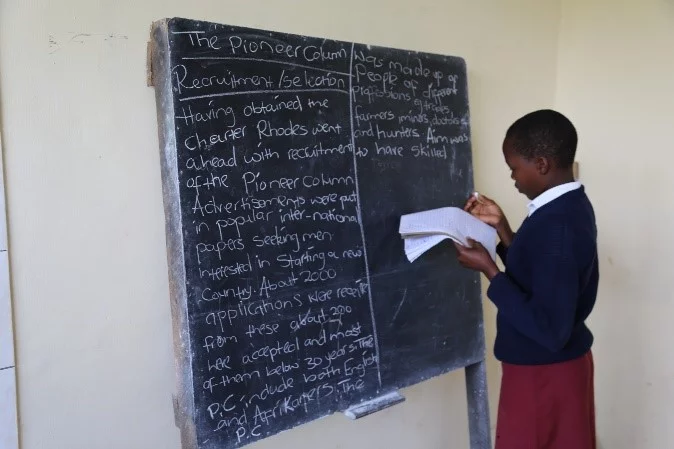 The Pioneer Column
Recruitment/selection
Having obtained the
charter Rhodes went
ahead with recruitment
of the Pioneer Column
Advertisements were put
in popular inter-national
papers seeking men
interested in starting a new
country. About 2000
applications were receive
from these about 200
were accepted and most
of them below 30 years. The
P.C. include both English
and Afrikaners. The
P.C.
was made up of
People of different
professions eg traders,
farmers, miners, doctors
and hunters. Aim was
to have skilled